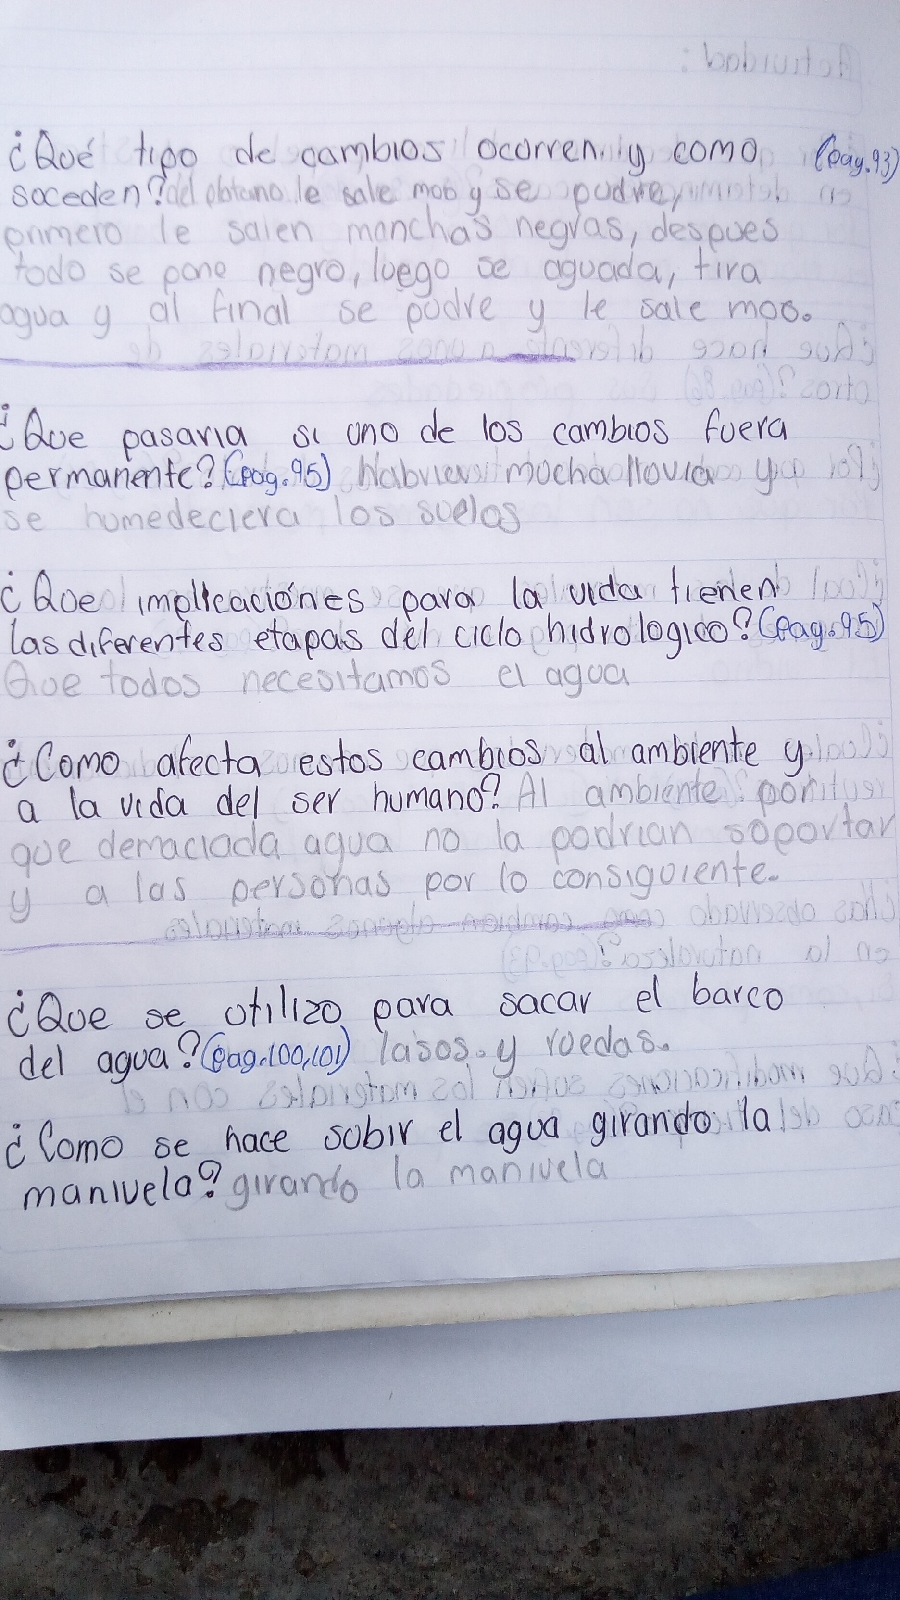 ¿Qué tipo de cambios ocorren y como (pag.93)
soceden? del platano le sale moo y se pudre,
primero le salen manchas negras, despues
todo se pone negro, luego se aguada, tira
agua y al final se pudre y le sale moo.
¿Que pasaria si uno de los cambios fuera
permanente? (pag.95) Habriera mucha llovia y
se humedeciera los suelos
¿Que implicaciónes para la vida tienen
las diferentes etapas del ciclo hidrologico? (pag.95)
Que todos necesitamos el agua
¿Como afecta estos cambios al ambiente y
a la vida del ser humano? Al ambiente por
que demaciada agua no la podrian soportar
y a las personas por lo consiguiente.
¿Que se utilizo para sacar el barco
del agua? (pag.100,101) lasos y ruedas.
¿Como se hace subir el agua girando la
manivela? girando la manivela